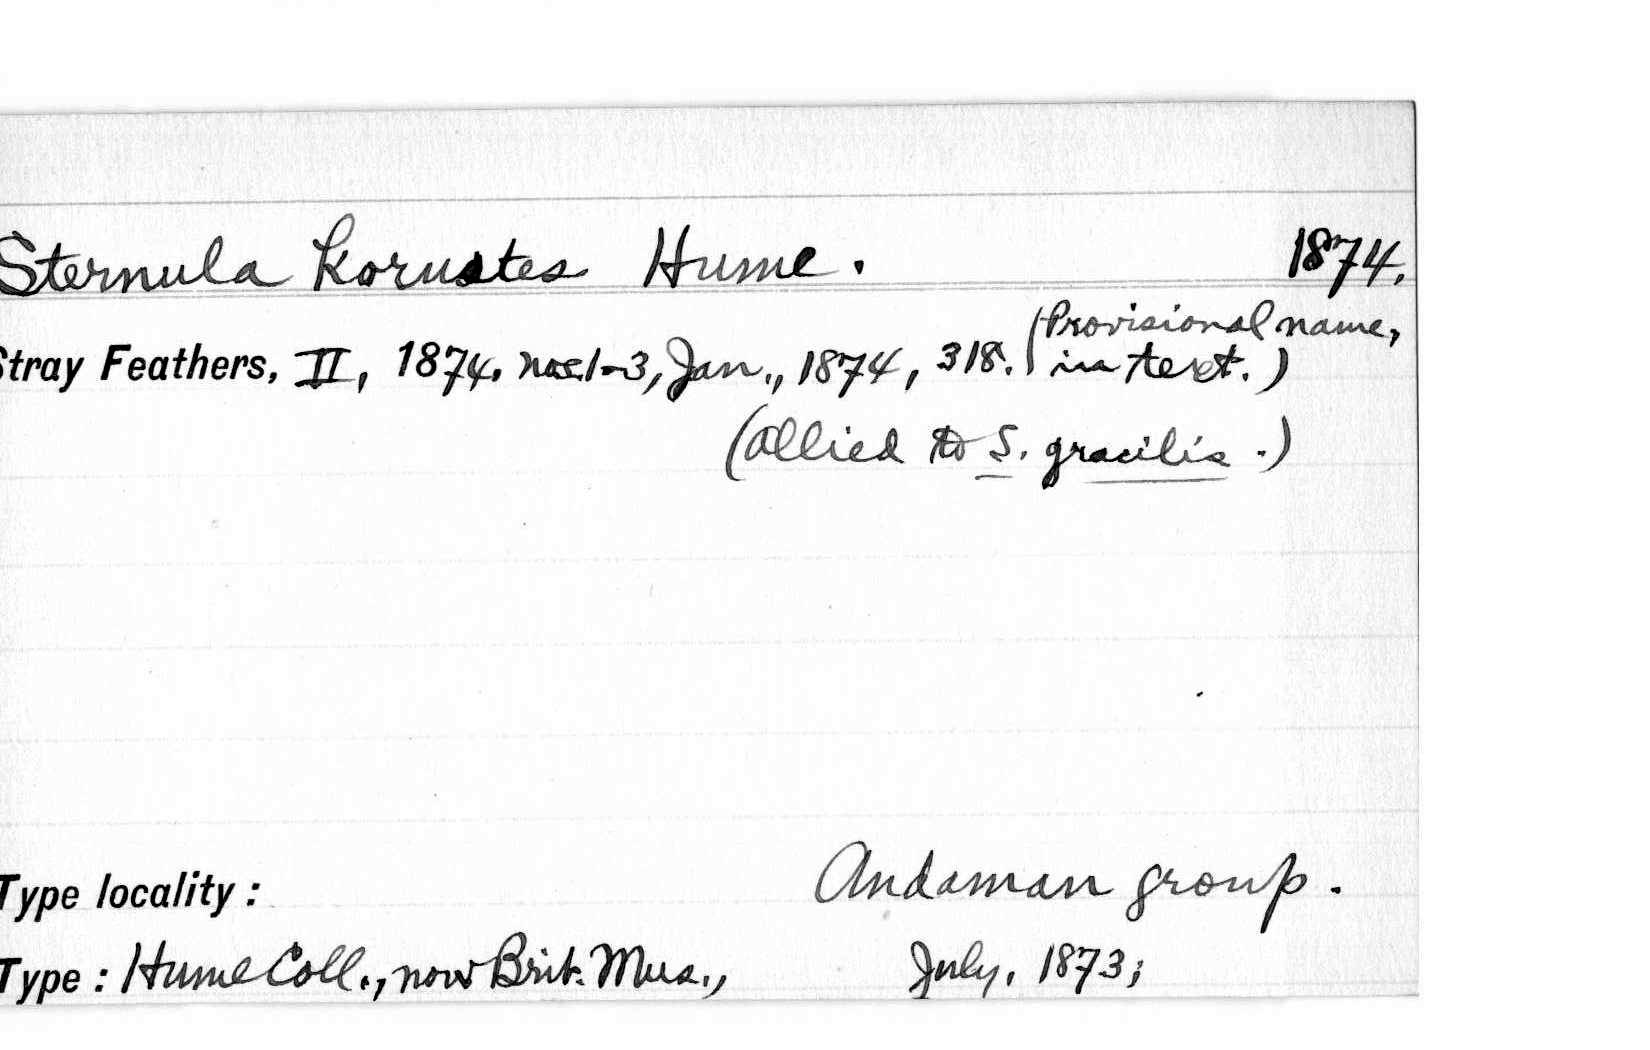 Sternula korustes Hume. 1874.
(Provisional name,
Stray Feathers, II, 1874. nos. 1-3, Jan., 1874, 318. in text.)
(allied to S. gracilis.)
Type locality: Andaman group.
Type: Hume Coll., now Brit. Mus., July, 1873;